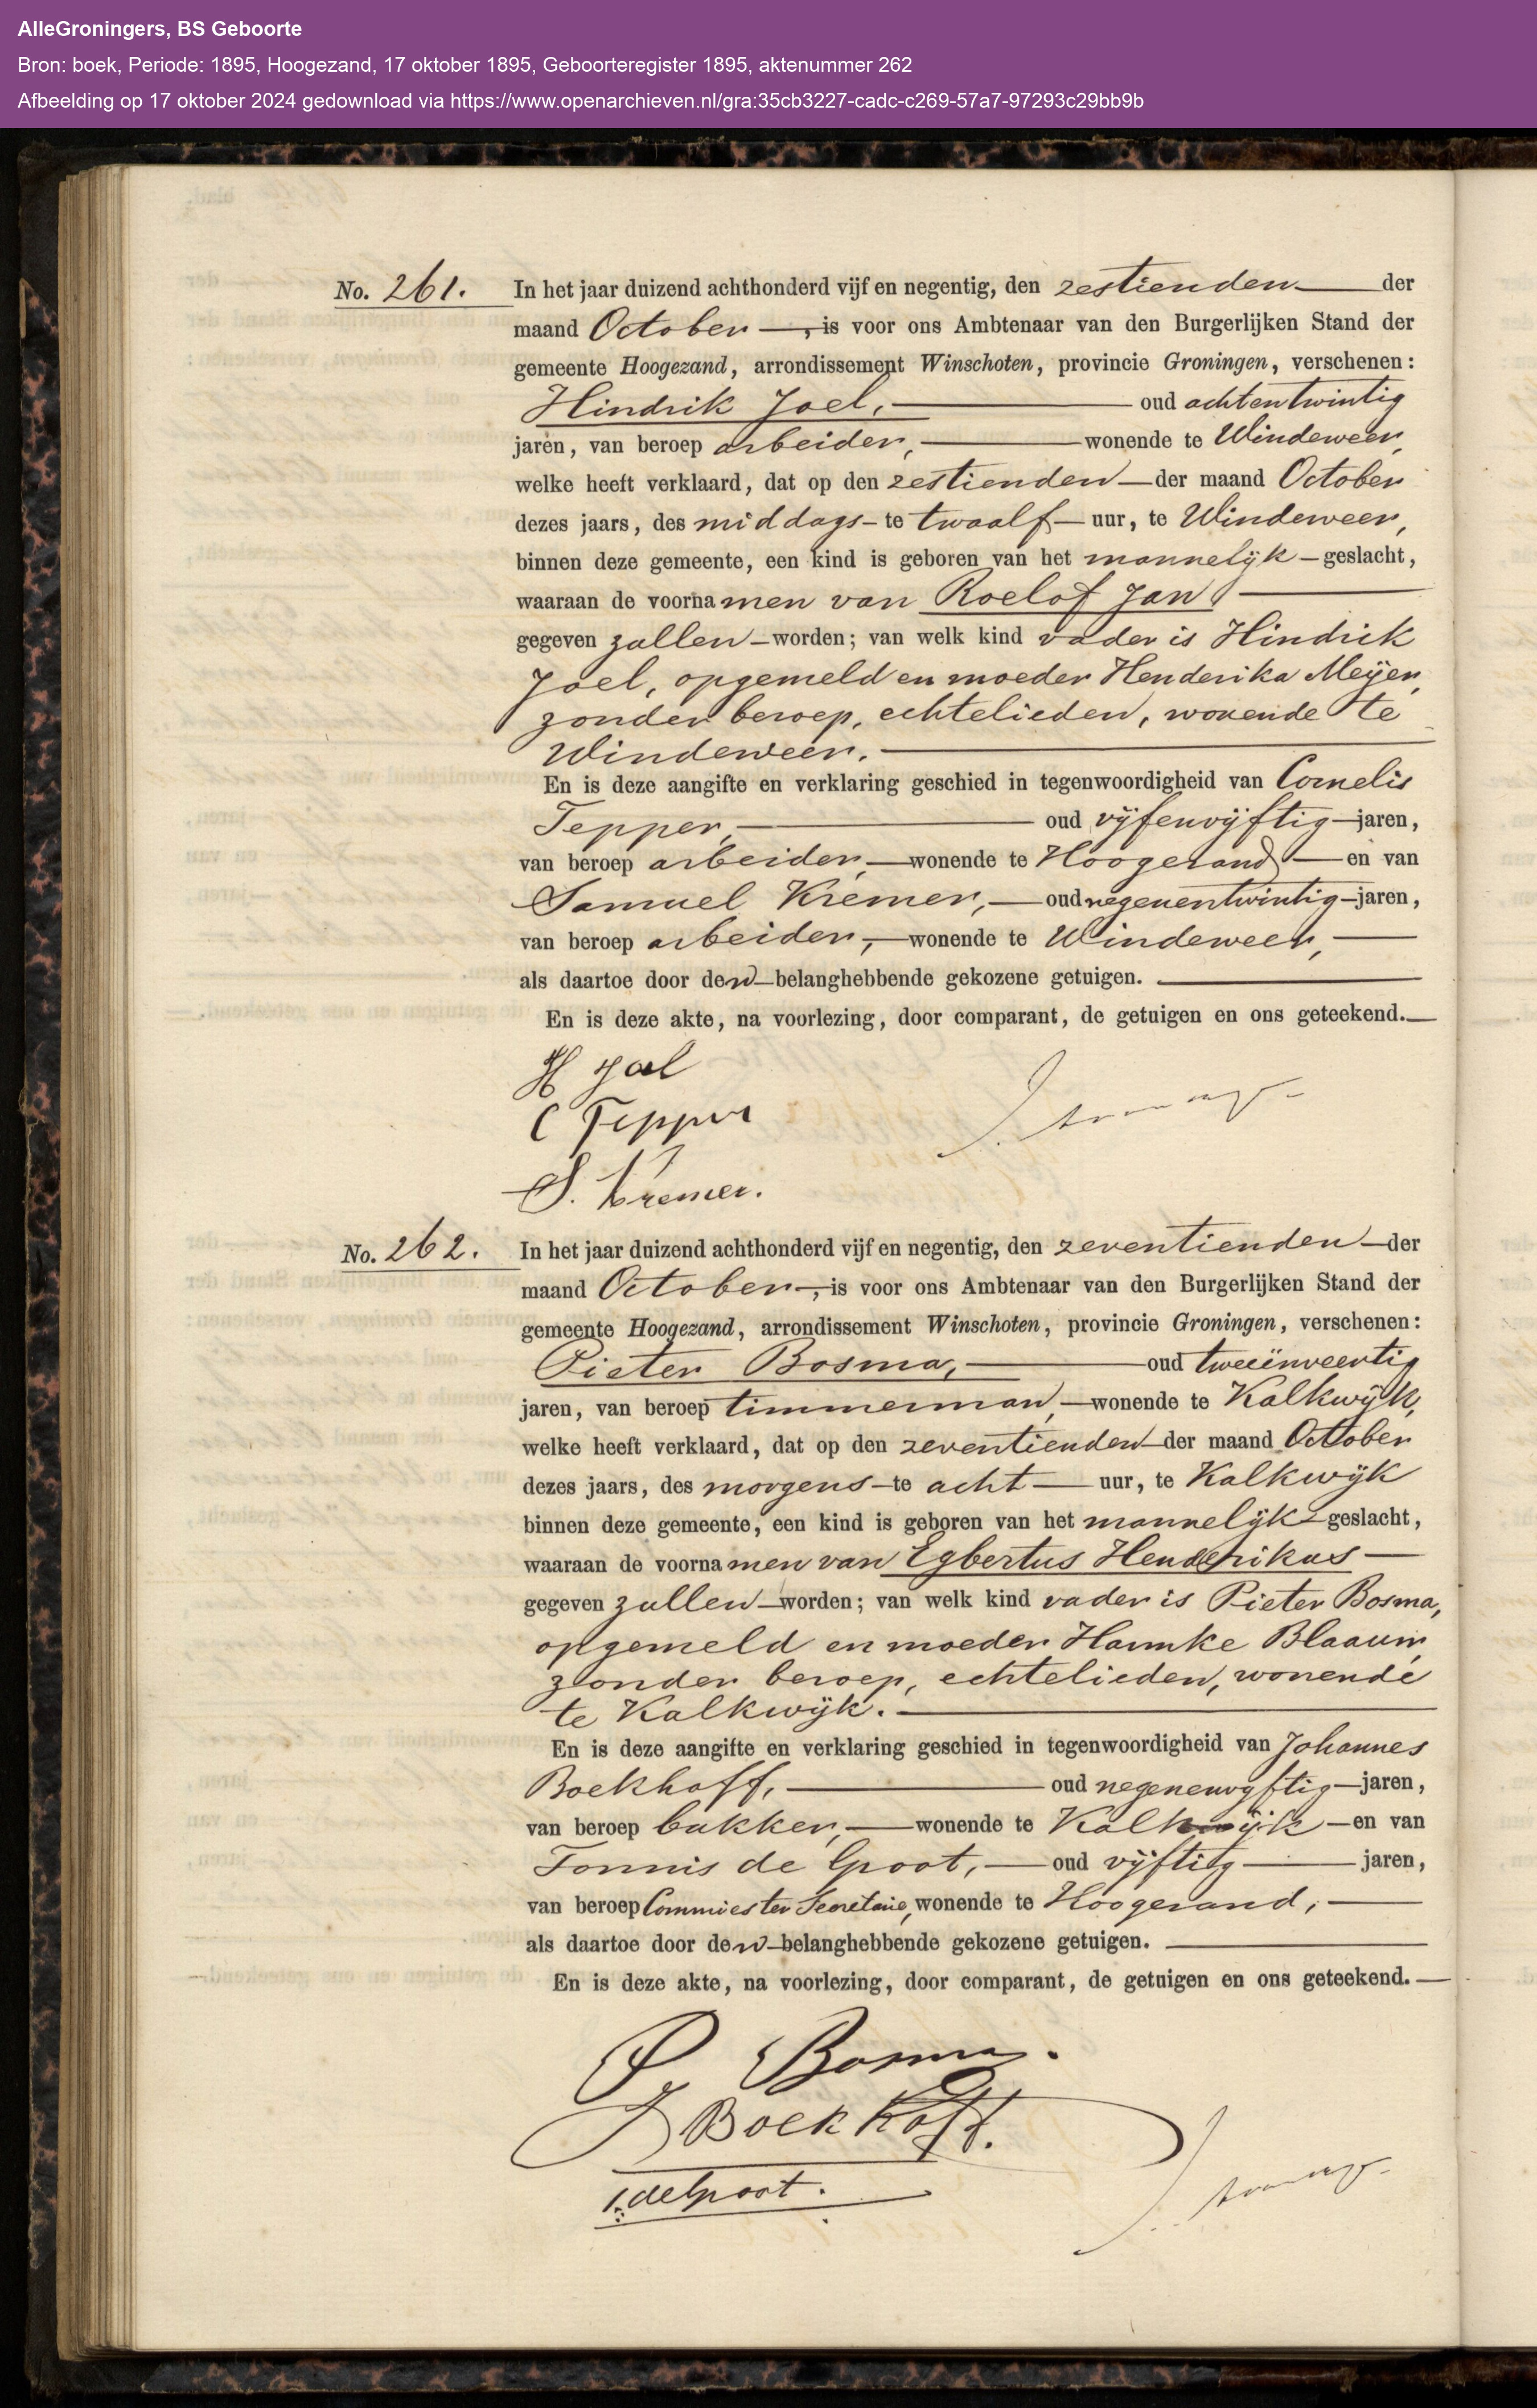 AlleGroningers, BS Geboorte
Bron: boek, Periode: 1895, Hoogezand, 17 oktober 1895, Geboorteregister 1895, aktenummer 262
Afbeelding op 17 oktober 2024 gedownload via https://www.openarchieven.nl/gra:35cb3227-cadc-c269-57a7-97293c29bb9b
No. 261. In het jaar duizend achthonderd vijf en negentig, den zestienden der
maand October, is voor ons Ambtenaar van den Burgerlijken Stand der
gemeente Hoogezand, arrondissement Winschoten, provincie Groningen, verschenen:
Hindrik Joel, oud achtentwintig
jaren, van beroep arbeider, wonende te Windeweer,
welke heeft verklaard, dat op den zestienden der maand October
dezes jaars, des middags te twaalf uur, te Windeweer,
binnen deze gemeente, een kind is geboren van het mannelijk geslacht,
waaraan de voornamen van Roelof Jan
gegeven zullen worden; van welk kind vader is Hindrik
Joel, opgemeld en moeder Henderika Meijer,
zonder beroep, echtelieden, wonende te
Windeweer.
En is deze aangifte en verklaring geschied in tegenwoordigheid van Cornelis
Tepper, oud vijfenvijftig jaren,
van beroep arbeider, wonende te Hoogezand en van
Samuel Kremer, oud negenentwintig jaren,
van beroep arbeider, wonende te Windeweer,
als daartoe door den belanghebbende gekozene getuigen.
En is deze akte, na voorlezing, door comparant, de getuigen en ons geteekend.
H Joel
C Tepper
S. Kremer.
No. 262. In het jaar duizend achthonderd vijf en negentig, den zeventienden der
maand October, is voor ons Ambtenaar van den Burgerlijken Stand der
gemeente Hoogezand, arrondissement Winschoten, provincie Groningen, verschenen:
Pieter Bosma, oud tweeënveertig
jaren, van beroep timmerman, wonende te Kalkwijk,
welke heeft verklaard, dat op den zeventienden der maand October
dezes jaars, des morgens te acht uur, te Kalkwijk
binnen deze gemeente, een kind is geboren van het mannelijk geslacht,
waaraan de voornamen van Egbertus Henderikus
gegeven zullen worden; van welk kind vader is Pieter Bosma,
opgemeld en moeder Hamke Blaauw,
zonder beroep, echtelieden, wonende
te Kalkwijk.
En is deze aangifte en verklaring geschied in tegenwoordigheid van Johannes
Boekhoff, oud negenenvijftig jaren,
van beroep bakker, wonende te Kalkwijk en van
Tonnis de Groot, oud vijftig jaren,
van beroep Commies ter Secretarie, wonende te Hoogezand,
als daartoe door den belanghebbende gekozene getuigen.
En is deze akte, na voorlezing, door comparant, de getuigen en ons geteekend.
P Bosma.
J Boekhoff.
T. de Groot.